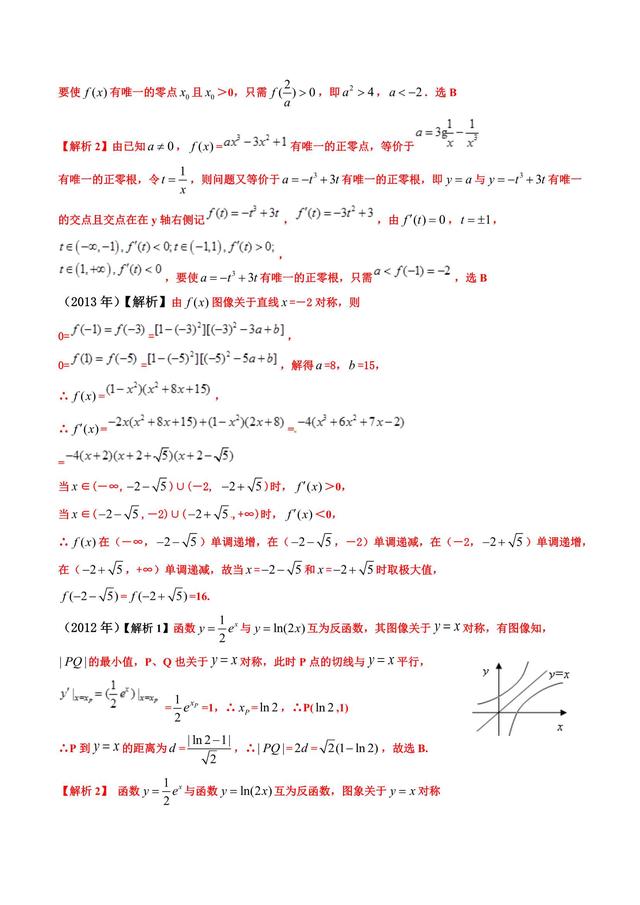 要使 f(x) 有唯一的零点 x₀ 且 x₀ >0，只需 f(2/a) > 0，即 a² > 4，a < −2．选 B
【解析2】由已知 a ≠ 0，f(x) = ax³ − 3x² + 1 有唯一的正零点，等价于 a = 3g 1/x − 1/x³
有唯一的正零根，令 t = 1/x，则问题又等价于 a = −t³ + 3t 有唯一的正零根，即 y = a 与 y = −t³ + 3t 有唯一
的交点且交点在在 y 轴右侧记 f(t) = −t³ + 3t，f′(t) = −3t² + 3，由 f′(t) = 0，t = ±1，
t∈(−∞,−1), f′(t) < 0; t∈(−1,1), f′(t) > 0;，
t∈(1,+∞), f′(t) < 0，要使 a = −t³ + 3t 有唯一的正零根，只需 a < f(−1) = −2，选 B
（2013 年）【解析】由 f(x) 图像关于直线 x =－2 对称，则
0= f(−1) = f(−3) = [1−(−3)²][(−3)² − 3a + b]，
0= f(1) = f(−5) = [1−(−5)²][(−5)² − 5a + b]，解得 a =8，b =15，
∴ f(x) = (1−x²)(x² + 8x + 15)，
∴ f′(x) = −2x(x² + 8x + 15) + (1−x²)(2x + 8) = −4(x³ + 6x² + 7x − 2)
= −4(x+2)(x+2+√5)(x+2−√5)
当 x ∈(－∞, −2−√5)∪(－2, −2+√5)时，f′(x) >0，
当 x ∈(−2−√5,－2)∪(−2+√5,+∞)时，f′(x) <0，
∴ f(x) 在（－∞，−2−√5）单调递增，在（−2−√5，－2）单调递减，在（－2，−2+√5）单调递增，
在（−2+√5，+∞）单调递减，故当 x = −2−√5 和 x = −2+√5 时取极大值，
f(−2−√5) = f(−2+√5) =16.
（2012 年）【解析1】函数 y = 1/2 eˣ 与 y = ln(2x) 互为反函数，其图像关于 y = x 对称，有图像知，
| PQ | 的最小值，P、Q 也关于 y = x 对称，此时 P 点的切线与 y = x 平行，
y y=x
y′|x=xP = (1/2 eˣ)|x=xP = 1/2 e^xP =1，∴ xP = ln 2，∴P( ln 2 ,1)
x
∴P 到 y = x 的距离为 d = |ln 2 − 1|/√2，∴| PQ |= 2d = √2(1−ln 2)，故选 B.
【解析2】 函数 y = 1/2 eˣ 与函数 y = ln(2x) 互为反函数，图象关于 y = x 对称